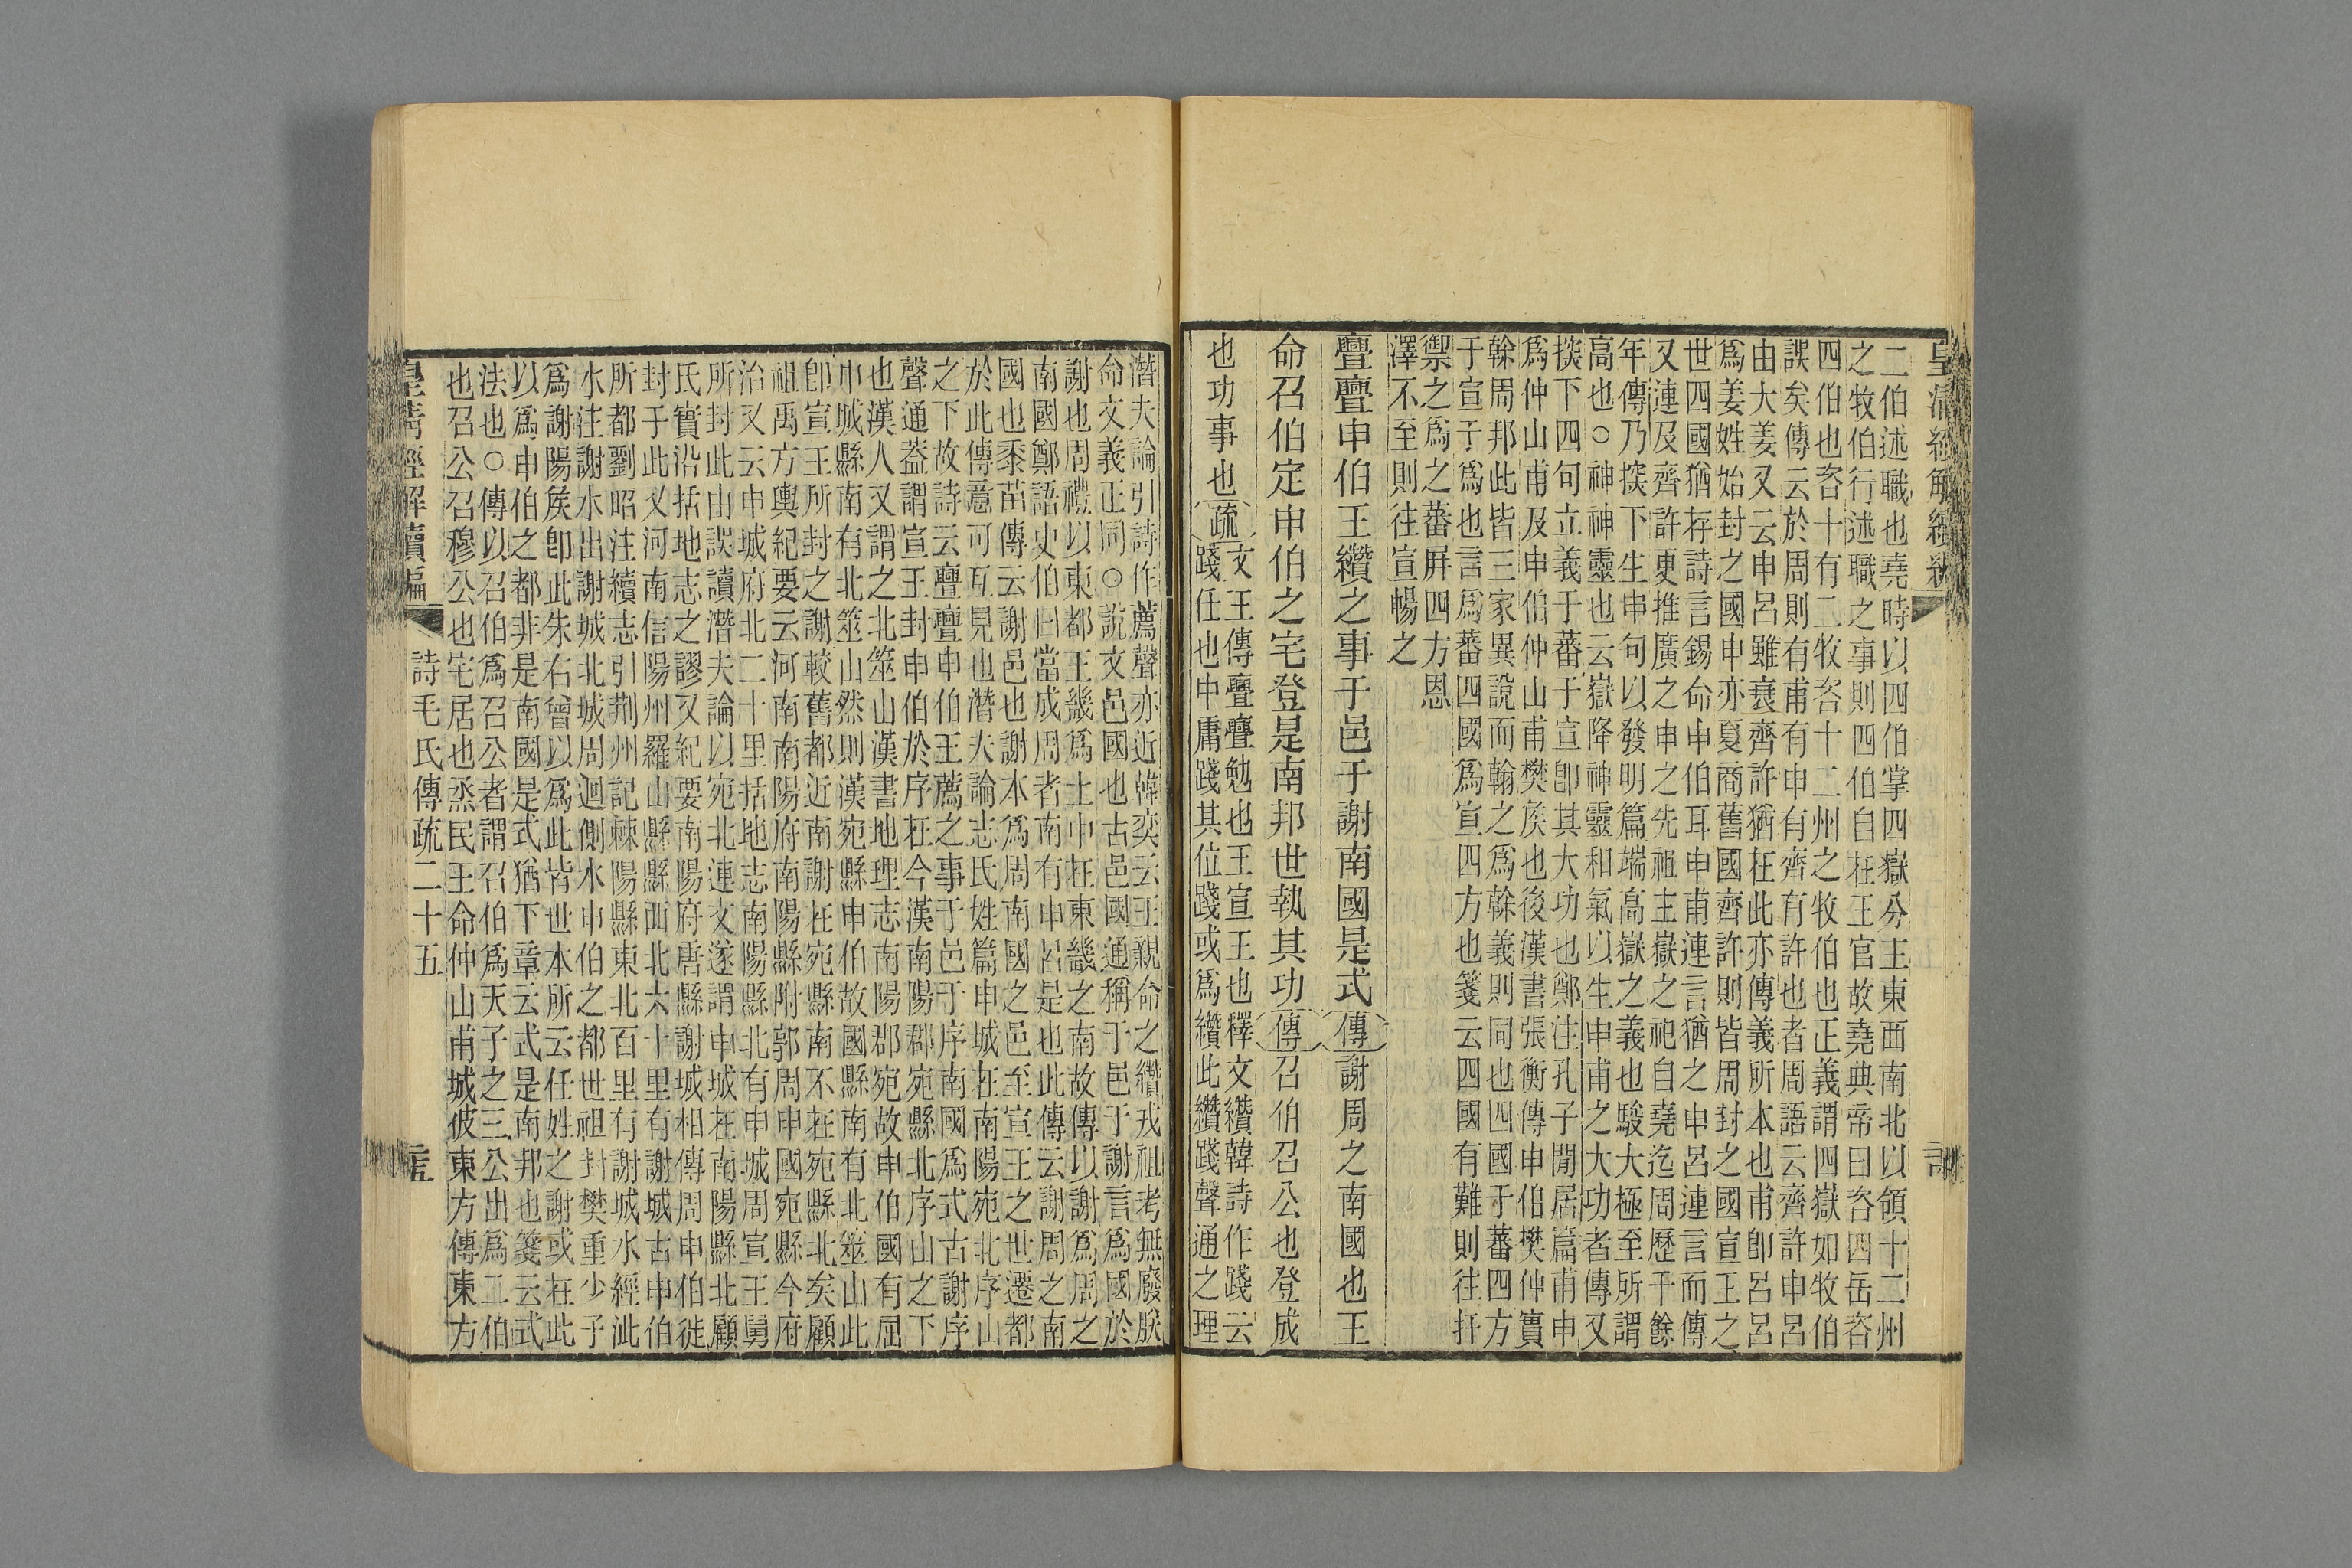 皇清經解續編
二伯述職也堯時以四伯掌四嶽分主東西南北以領十二州
之牧伯行述職之事則四伯自在王官故堯典帝曰咨四岳咨
四伯也咨十有二牧咨十二州之牧伯也正義謂四嶽如牧伯
誤矣傳云於周則有甫有申有齊有許也者周語云齊許申呂
由大姜又云申呂雖衰齊許猶在此亦傳義所本也甫卽呂呂
爲姜姓始封之國申亦夏商舊國齊許則皆周封之國宣王之
世四國猶存詩言錫命申伯耳申甫連言猶之申呂連言而傳
又連及齊許更推廣之申之先祖主嶽之祀自堯迄周歷千餘
年傳乃揆下生申句以發明篇端高嶽之義也駿大極至所謂
高也○神神靈也云嶽降神靈和氣以生申甫之大功者傳又
揆下四句立義于蕃于宣卽其大功也鄭注孔子閒居篇甫申
爲仲山甫及申伯仲山甫樊矦也後漢書張衡傳申伯樊仲實
榦周邦此皆三家異說而翰之爲榦義則同也四國于蕃四方
于宣于爲也言爲蕃四國爲宣四方也箋云四國有難則往扞
禦之爲之蕃屛四方恩
澤不至則往宣暢之
亹亹申伯王纘之事于邑于謝南國是式傳謝周之南國也王
命召伯定申伯之宅登是南邦世執其功傳召伯召公也登成
也功事也疏文王傳亹亹勉也王宣王也釋文纘韓詩作踐云
踐任也中庸踐其位踐或爲纘此纘踐聲通之理
潛夫論引詩作薦聲亦近韓奕云王親命之纘戎祖考無廢朕
命文義正同○說文邑國也古邑國通稱于邑于謝言爲國於
謝也周禮以東都王畿爲土中在東畿之南故傳以謝爲周之
南國鄭語史伯曰當成周者南有申呂是也此傳云謝周之南
國也黍苗傳云謝邑也謝本爲周南國之邑至宣王之世遷都
於此傳意可互見也潛夫論志氏姓篇申城在南陽宛北序山
之下故詩云亹亹申伯王薦之事于邑于序南國爲式古謝序
聲通葢謂宣王封申伯於序在今漢南陽郡宛縣北序山之下
也漢人又謂之北筮山漢書地理志南陽郡宛故申伯國有屈
申城縣南有北筮山然則漢宛縣申伯故國縣南有北筮山此
卽宣王所封之謝較舊都近南謝在宛縣南不在宛縣北矣顧
祖禹方輿紀要云河南南陽府南陽縣附郭周申國宛縣今府
治又云申城府北二十里括地志南陽縣北有申城周宣王舅
所封此山誤讀潛夫論以宛北連文遂謂申城在南陽縣北顧
氏實沿括地志之謬又紀要南陽府唐縣謝城相傳周申伯徙
封于此又河南信陽州羅山縣縣西北六十里有謝城古申伯
所都劉昭注續志引荆州記棘陽縣東北百里有謝城水經泚
水注謝水出謝城北城周迴側水申伯之都世祖封樊重少子
爲謝陽矦卽此朱右曾以爲此皆世本所云任姓之謝或在此
以爲申伯之都非是南國是式猶下章云式是南邦也箋云式
法也○傳以召伯爲召公者謂召伯爲天子之三公出爲二伯
也召公召穆公也宅居也烝民王命仲山甫城彼東方傳東方
皇清經解續編 詩毛氏傳疏二十五